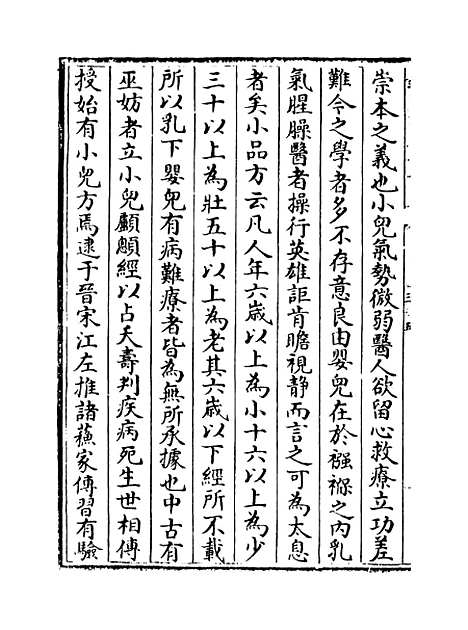 崇本之義也小兒氣勢微弱醫人欲留心救療立功差
難今之學者多不存意良由嬰兒在於襁褓之内乳
氣腥臊醫者操行英雄詎肯瞻視静而言之可為太息
者矣小品方云凡人年六歳以上為小十六以上為少
三十以上為壯五十以上為老其六歳以下經所不載
所以乳下嬰兒有病難療者皆為無所承據也中古有
巫妨者立小兒顱顖經以占夭壽判疾病死生世相傳
授始有小兒方焉逮于晉宋江左推諸蘓家傳習有驗